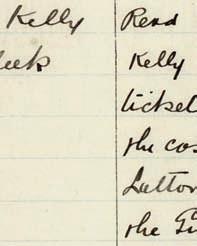 Kelly
eek
Read
Kelly
ticket
the cos
Sutton
the Gi